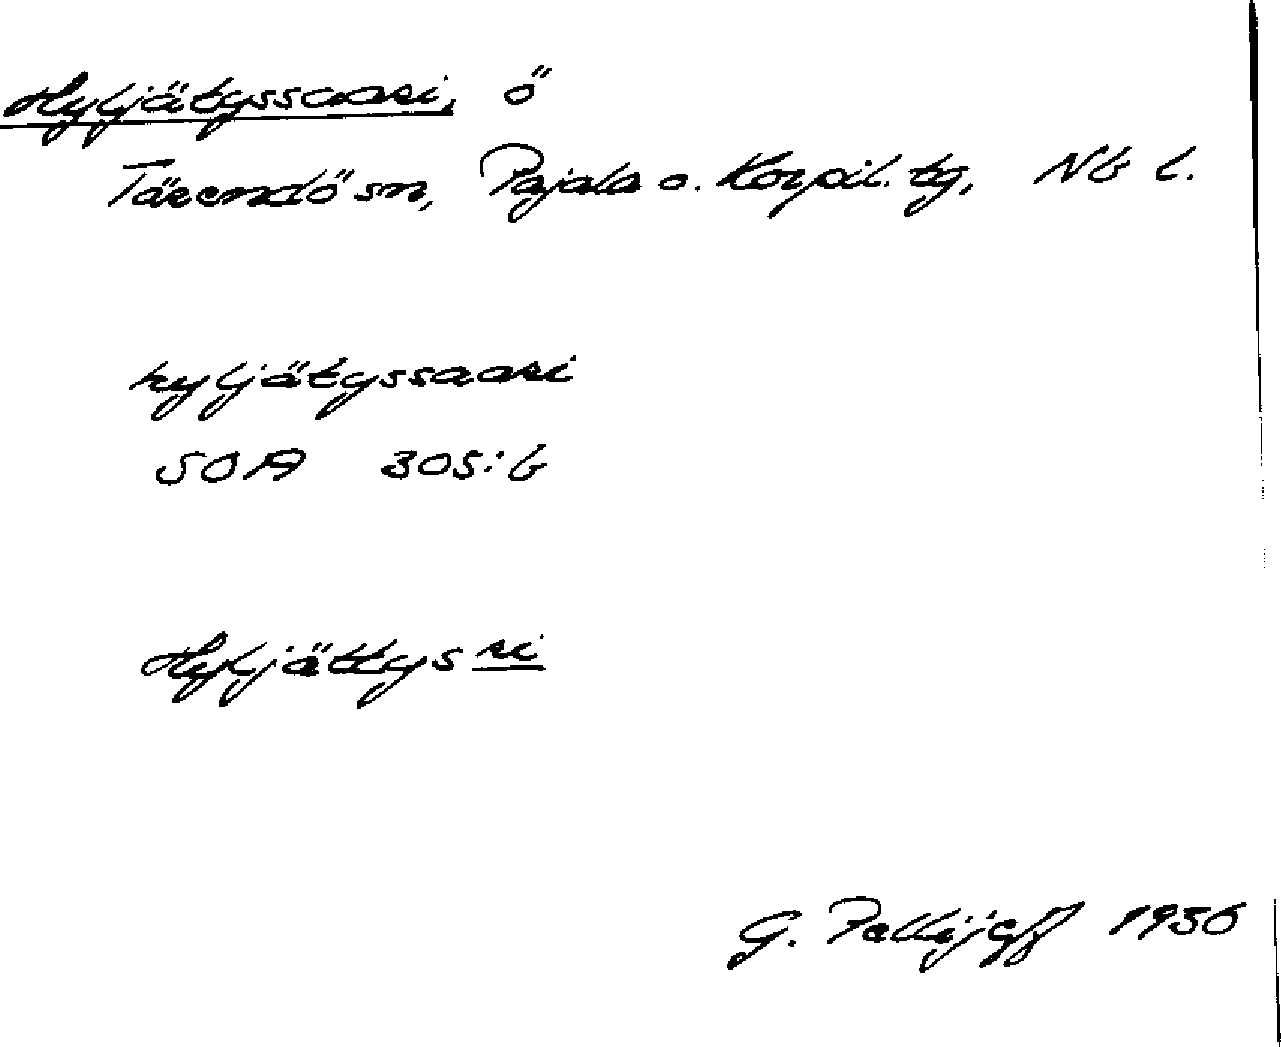 Hyljätyssaari, ö
Tärendö sn, Pajala o. Korpil. tg, Nb l.
hyljätyssaari
SOA 305:6
Hyljättys ri
G. Pellijeff 1956